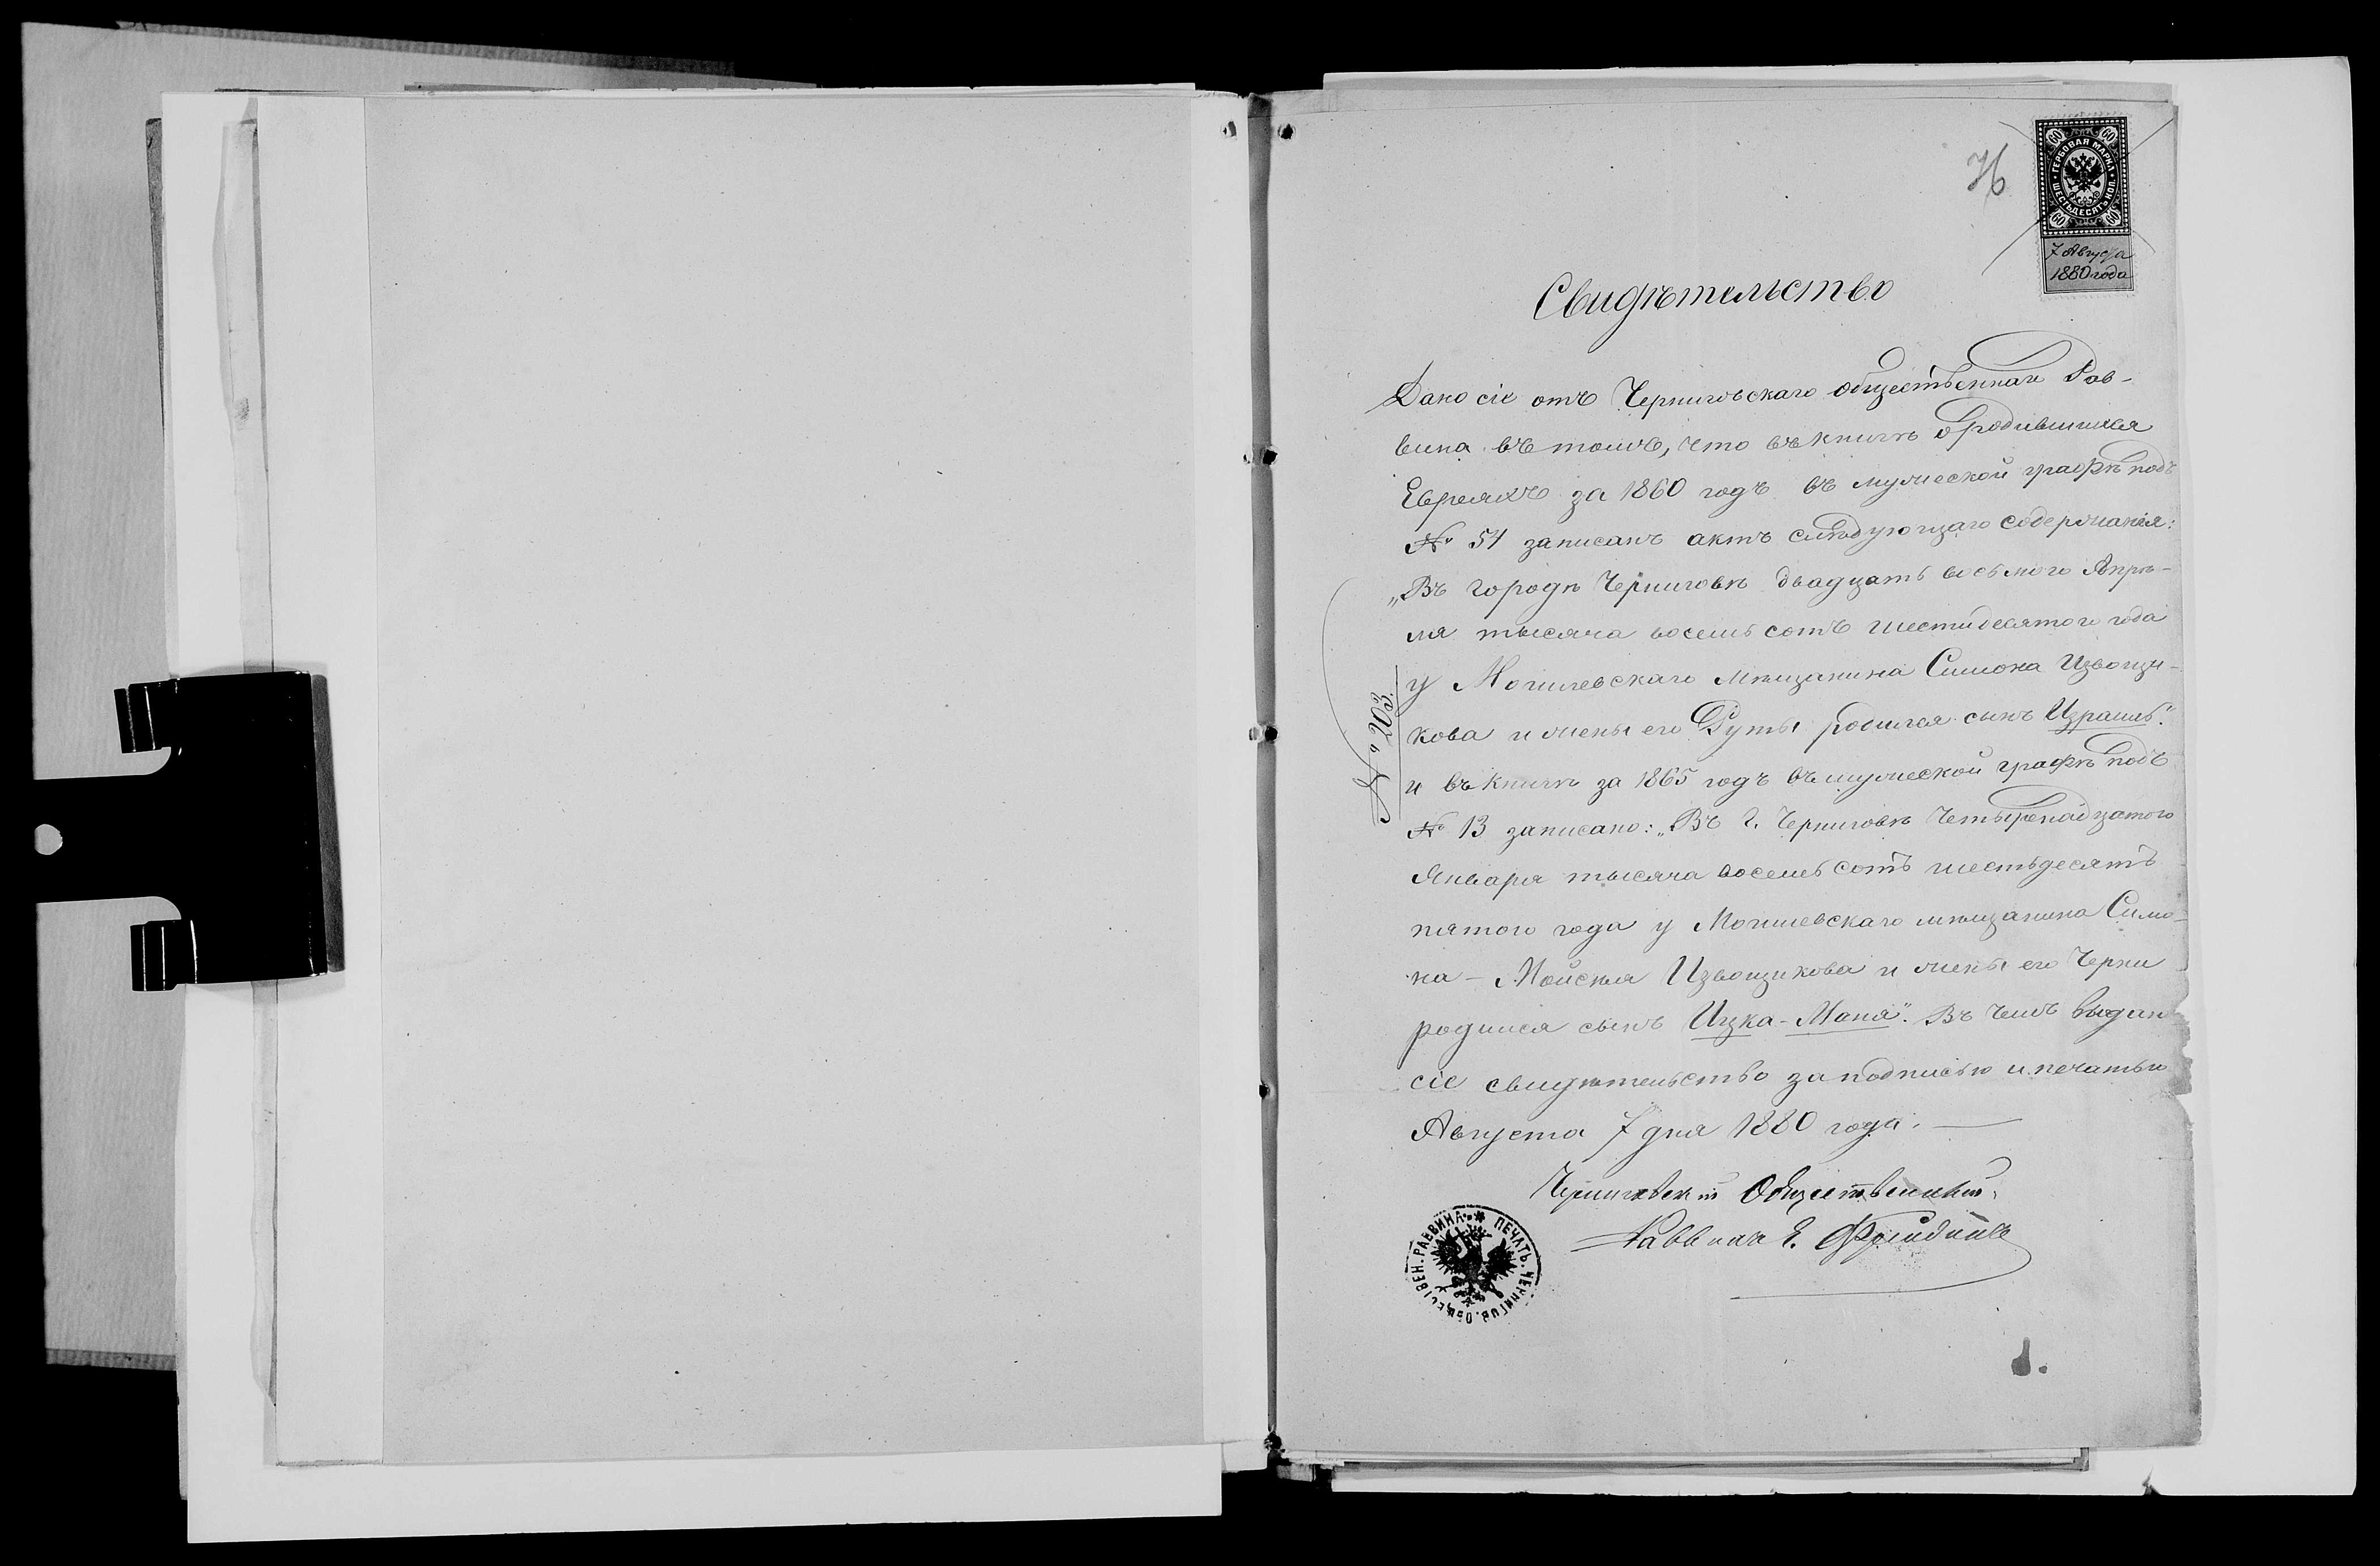 76
ГЕРБОВАЯ МАРКА
ШЕСТЬДЕСЯТЪ КОП.
60 60
60 60
7 Августа
1880 года
Свидѣтельство
Дано сіе отъ Черниговскаго общественнаго Рав-
вина въ томъ, что въ книгѣ о родившихся
Евреяхъ за 1860 годъ въ мужеской графѣ подъ
№ 51 записанъ актъ слѣдующаго содержанія:
„Въ городѣ Черниговѣ двадцать восьмого Апрѣ-
ля тысяча восемь сотъ шестидесятого года
у Могилевскаго мѣщанина Симона Извощи-
кова и жены его Руты родился сынъ Израиль".
и въ книгѣ за 1865 годъ въ мужеской графѣ подъ
№ 13 записано: „Въ г. Черниговѣ Четырнадцатого
Января тысяча восемь сотъ шестьдесятъ
пятого года у Могилевскаго мѣщанина Симо-
на-Мойсея Извощикова и жены его Черни
родился сынъ Ицка-Маня". Въ чемъ выдан
сіе свидѣтельство за подписью и печатью
Августа 7 дня 1880 года.
№ 203.
Черниговскій Общественный
Раввинъ Е. Фрейдинъ
ПЕЧАТЬ. ЧЕРНИГОВ. ОБЩЕСТВЕН. РАВВИНА.